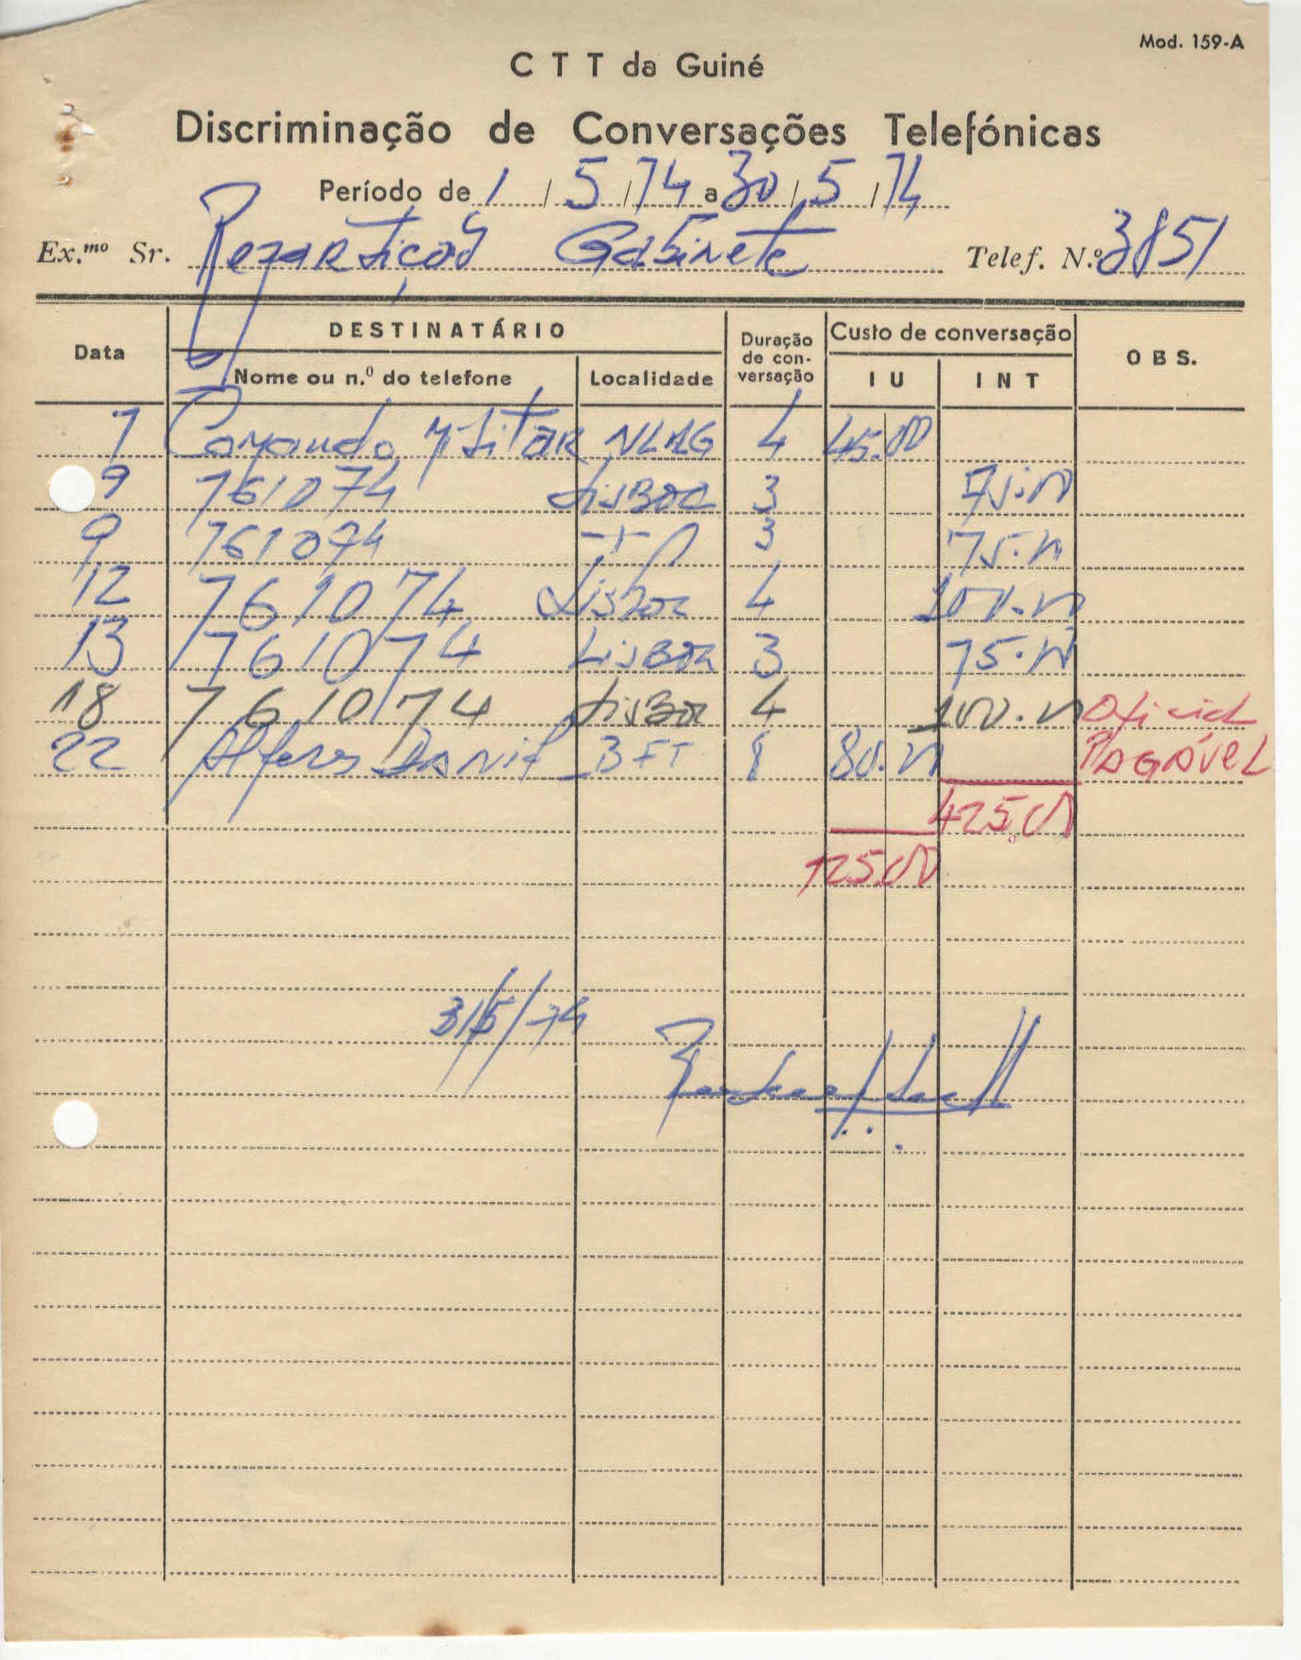 Mod. 159-A
CTT da Guiné
Discriminação de Conversações Telefónicas
Período de 1/5/74 a 30/5/74
Ex.mo Sr. Repartição Gabinete Telef. N.º 3851
Data DESTINATÁRIO Nome ou n.º do telefone Localidade Duração de conversação Custo de conversação IU INT OBS.
7 Comando Militar 4 45.00
9 761074 Lisboa 3 75.00
9 761074 3 75.00
12 761074 Lisboa 4 100.00
13 761074 Lisboa 3 75.00
18 761074 Lisboa 4 100.00 Oficial
22 Alferes BFT 8 80.00 PAGÁVEL
425.00
125.00
31/5/74